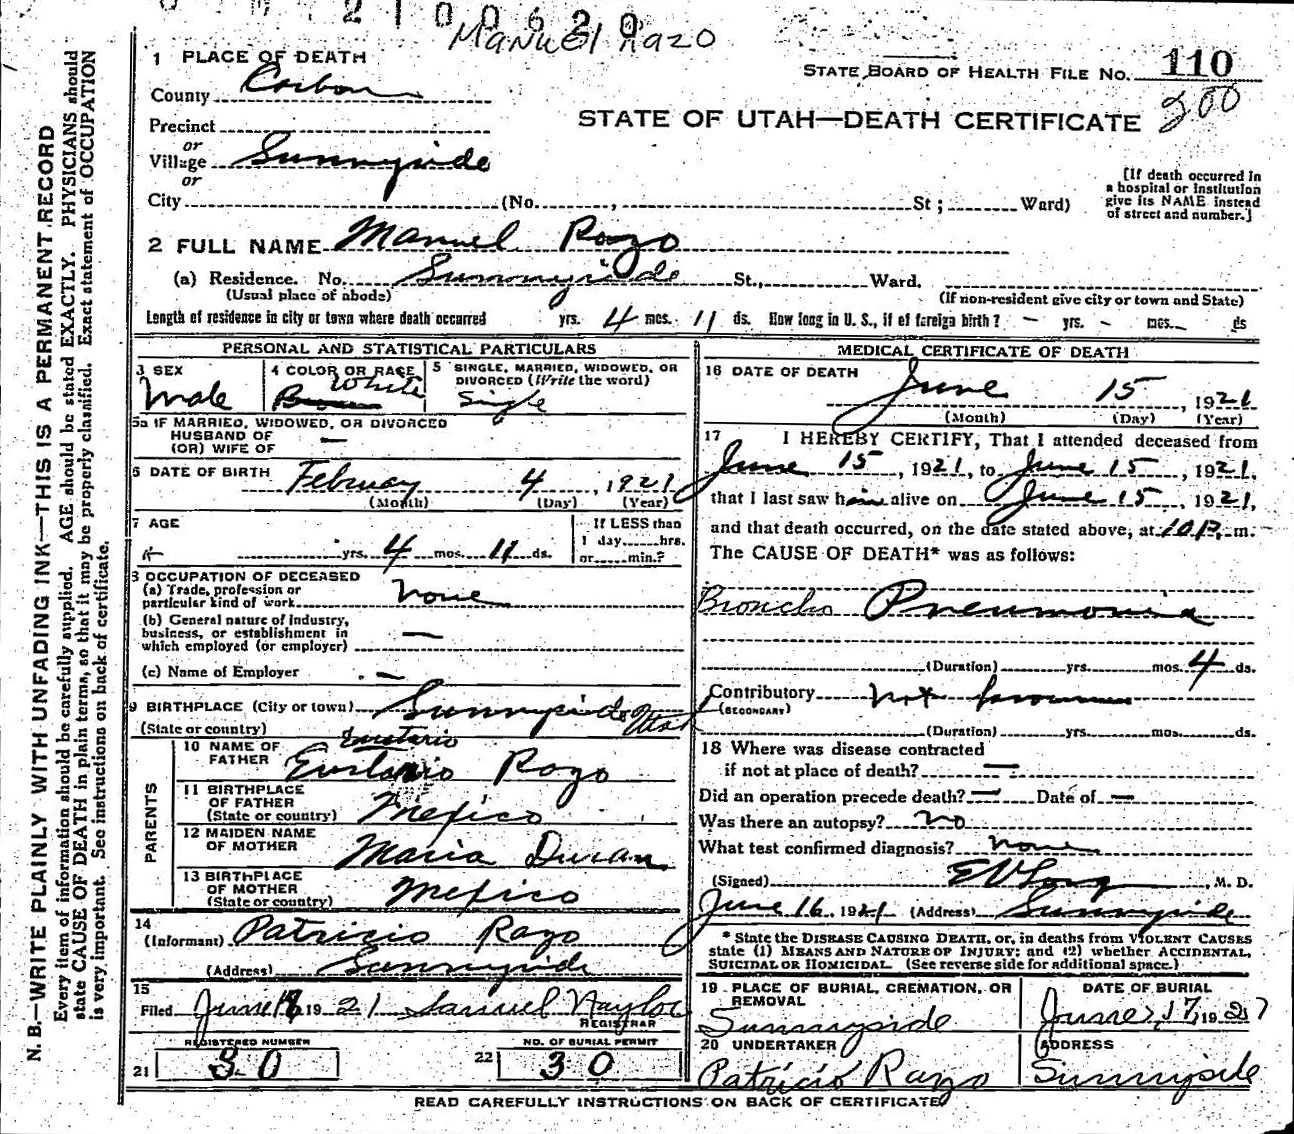 2100620
Manuel Razo
1 PLACE OF DEATH
STATE BOARD OF HEALTH FILE NO. 110
County Carbon
200
STATE OF UTAH—DEATH CERTIFICATE
Precinct
or
Village Sunnyside
or
City (No. , St ; Ward)
[If death occurred in
a hospital or institution
give its NAME instead
of street and number.]
2 FULL NAME Manuel Razo
(a) Residence. No. Sunnyside St., Ward.
(Usual place of abode) (If non-resident give city or town and State)
Length of residence in city or town where death occurred yrs. 4 mos. 11 ds. How long in U. S., if of foreign birth? — yrs. – mos. ds
PERSONAL AND STATISTICAL PARTICULARS
3 SEX
Male
4 COLOR OR RACE
White
Brown
5 SINGLE, MARRIED, WIDOWED, OR
DIVORCED (Write the word)
Single
5a IF MARRIED, WIDOWED, OR DIVORCED
HUSBAND OF
(OR) WIFE OF —
6 DATE OF BIRTH February 4, 1921
(Month) (Day) (Year)
7 AGE
yrs. 4 mos. 11 ds.
If LESS than
1 day......hrs.
or......min.?
8 OCCUPATION OF DECEASED
(a) Trade, profession or
particular kind of work none
(b) General nature of Industry,
business, or establishment in
which employed (or employer) —
(c) Name of Employer —
9 BIRTHPLACE (City or town) Sunnyside Utah
(State or country)
PARENTS
10 NAME OF
FATHER
Eustario
Razo
11 BIRTHPLACE
OF FATHER
(State or country) Mexico
12 MAIDEN NAME
OF MOTHER Maria Duran
13 BIRTHPLACE
OF MOTHER
(State or country) Mexico
14
(Informant) Patricio Razo
(Address) Sunnyside
15
Filed June 1921 Samuel Naylor
REGISTRAR
REGISTERED NUMBER
21 30
NO. OF BURIAL PERMIT
22 30
MEDICAL CERTIFICATE OF DEATH
16 DATE OF DEATH
June 15, 1921
(Month) (Day) (Year)
17 I HEREBY CERTIFY, That I attended deceased from
June 15, 1921, to June 15, 1921,
that I last saw him alive on June 15, 1921,
and that death occurred, on the date stated above, at 10 P. m.
The CAUSE OF DEATH* was as follows:
Broncho Pneumonia
(Duration) yrs. mos. 4 ds.
Contributory not known
(SECONDARY)
(Duration) yrs. mos. ds.
18 Where was disease contracted
if not at place of death? —
Did an operation precede death? — Date of —
Was there an autopsy? no
What test confirmed diagnosis? none
(Signed) E V Long, M. D.
June 16 1921 (Address) Sunnyside
* State the DISEASE CAUSING DEATH, or, in deaths from VIOLENT CAUSES
state (1) MEANS AND NATURE OF INJURY; and (2) whether ACCIDENTAL,
SUICIDAL OR HOMICIDAL. (See reverse side for additional space.)
19 PLACE OF BURIAL, CREMATION, OR
REMOVAL
Sunnyside
DATE OF BURIAL
June 17, 192
20 UNDERTAKER
Patricio Razo
ADDRESS
Sunnyside
READ CAREFULLY INSTRUCTIONS ON BACK OF CERTIFICATE
N. B.—WRITE PLAINLY WITH UNFADING INK—THIS IS A PERMANENT RECORD
Every item of information should be carefully supplied. AGE should be stated EXACTLY. PHYSICIANS should
state CAUSE OF DEATH in plain terms, so that it may be properly classified. Exact statement of OCCUPATION
is very important. See instructions on back of certificate.